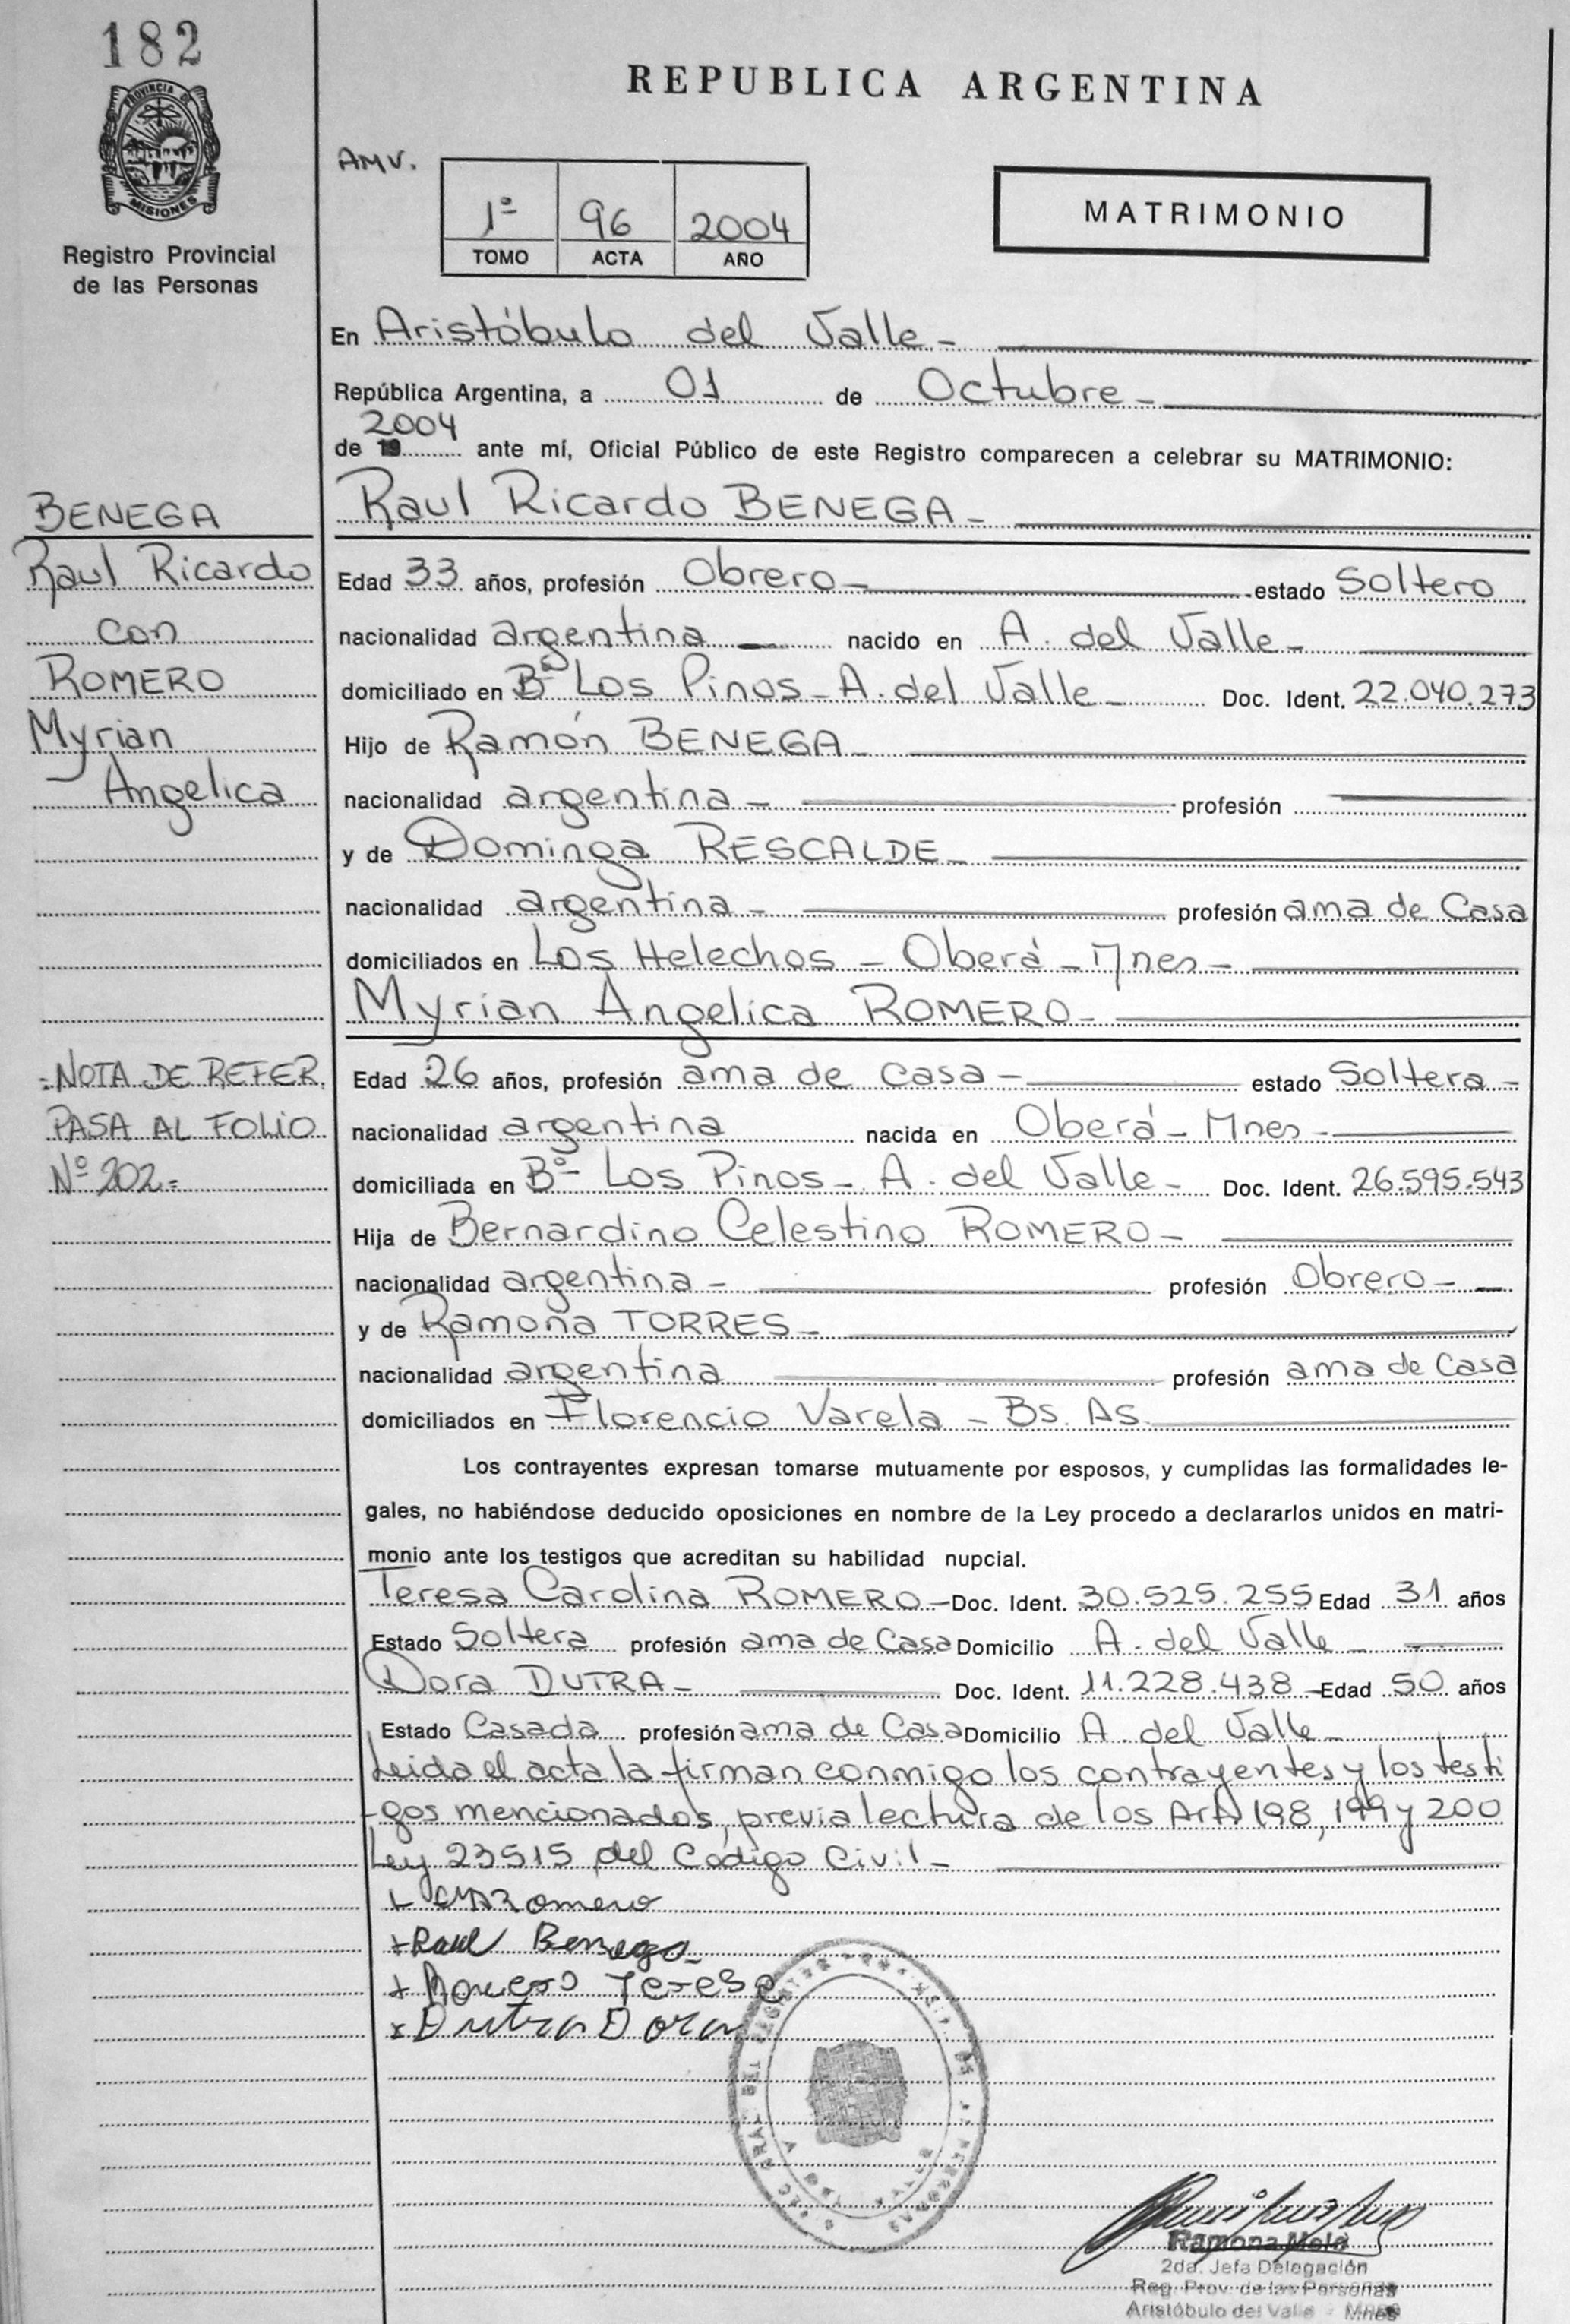 182
PROVINCIA DE
MISIONES
Registro Provincial
de las Personas
REPUBLICA ARGENTINA
AMV.
1º 96 2004
TOMO ACTA AÑO
MATRIMONIO
En Aristóbulo del Valle -
República Argentina, a 01 de Octubre -
2004
de 19 ante mí, Oficial Público de este Registro comparecen a celebrar su MATRIMONIO:
BENEGA
Raul Ricardo
con
ROMERO
Myrian
Angelica
Raul Ricardo BENEGA -
Edad 33 años, profesión Obrero - estado Soltero
nacionalidad argentina - nacido en A. del Valle -
domiciliado en Bº Los Pinos - A. del Valle - Doc. Ident. 22.040.273
Hijo de Ramón BENEGA
nacionalidad argentina - profesión
y de Dominga RESCALDE -
nacionalidad argentina - profesión ama de Casa
domiciliados en Los Helechos - Oberá - Mnes -
Myrian Angelica ROMERO -
=NOTA DE REFER.
PASA AL FOLIO
Nº 202=
Edad 26 años, profesión ama de casa - estado Soltera -
nacionalidad argentina nacida en Oberá - Mnes -
domiciliada en Bº Los Pinos - A. del Valle - Doc. Ident. 26.595.543
Hija de Bernardino Celestino ROMERO -
nacionalidad argentina - profesión Obrero -
y de Ramona TORRES -
nacionalidad argentina profesión ama de Casa
domiciliados en Florencio Varela - Bs. As.
Los contrayentes expresan tomarse mutuamente por esposos, y cumplidas las formalidades le-
gales, no habiéndose deducido oposiciones en nombre de la Ley procedo a declararlos unidos en matri-
monio ante los testigos que acreditan su habilidad nupcial.
Teresa Carolina ROMERO - Doc. Ident. 30.525.255 Edad 31 años
Estado Soltera profesión ama de Casa Domicilio A. del Valle
Dora DUTRA - Doc. Ident. 11.228.438 Edad 50 años
Estado Casada profesión ama de Casa Domicilio A. del Valle -
Leida el acta la firman conmigo los contrayentes y los testi
-gos mencionados, previa lectura de los Arts 198, 199 y 200
Ley 23515 del Código Civil -
Romero
+Raul Benega
+ Romero Teresa
x Dutra Dora
Ramona Melo
2da. Jefa Delegación
Reg. Prov. de las Personas
Aristóbulo del Valle - Mnes